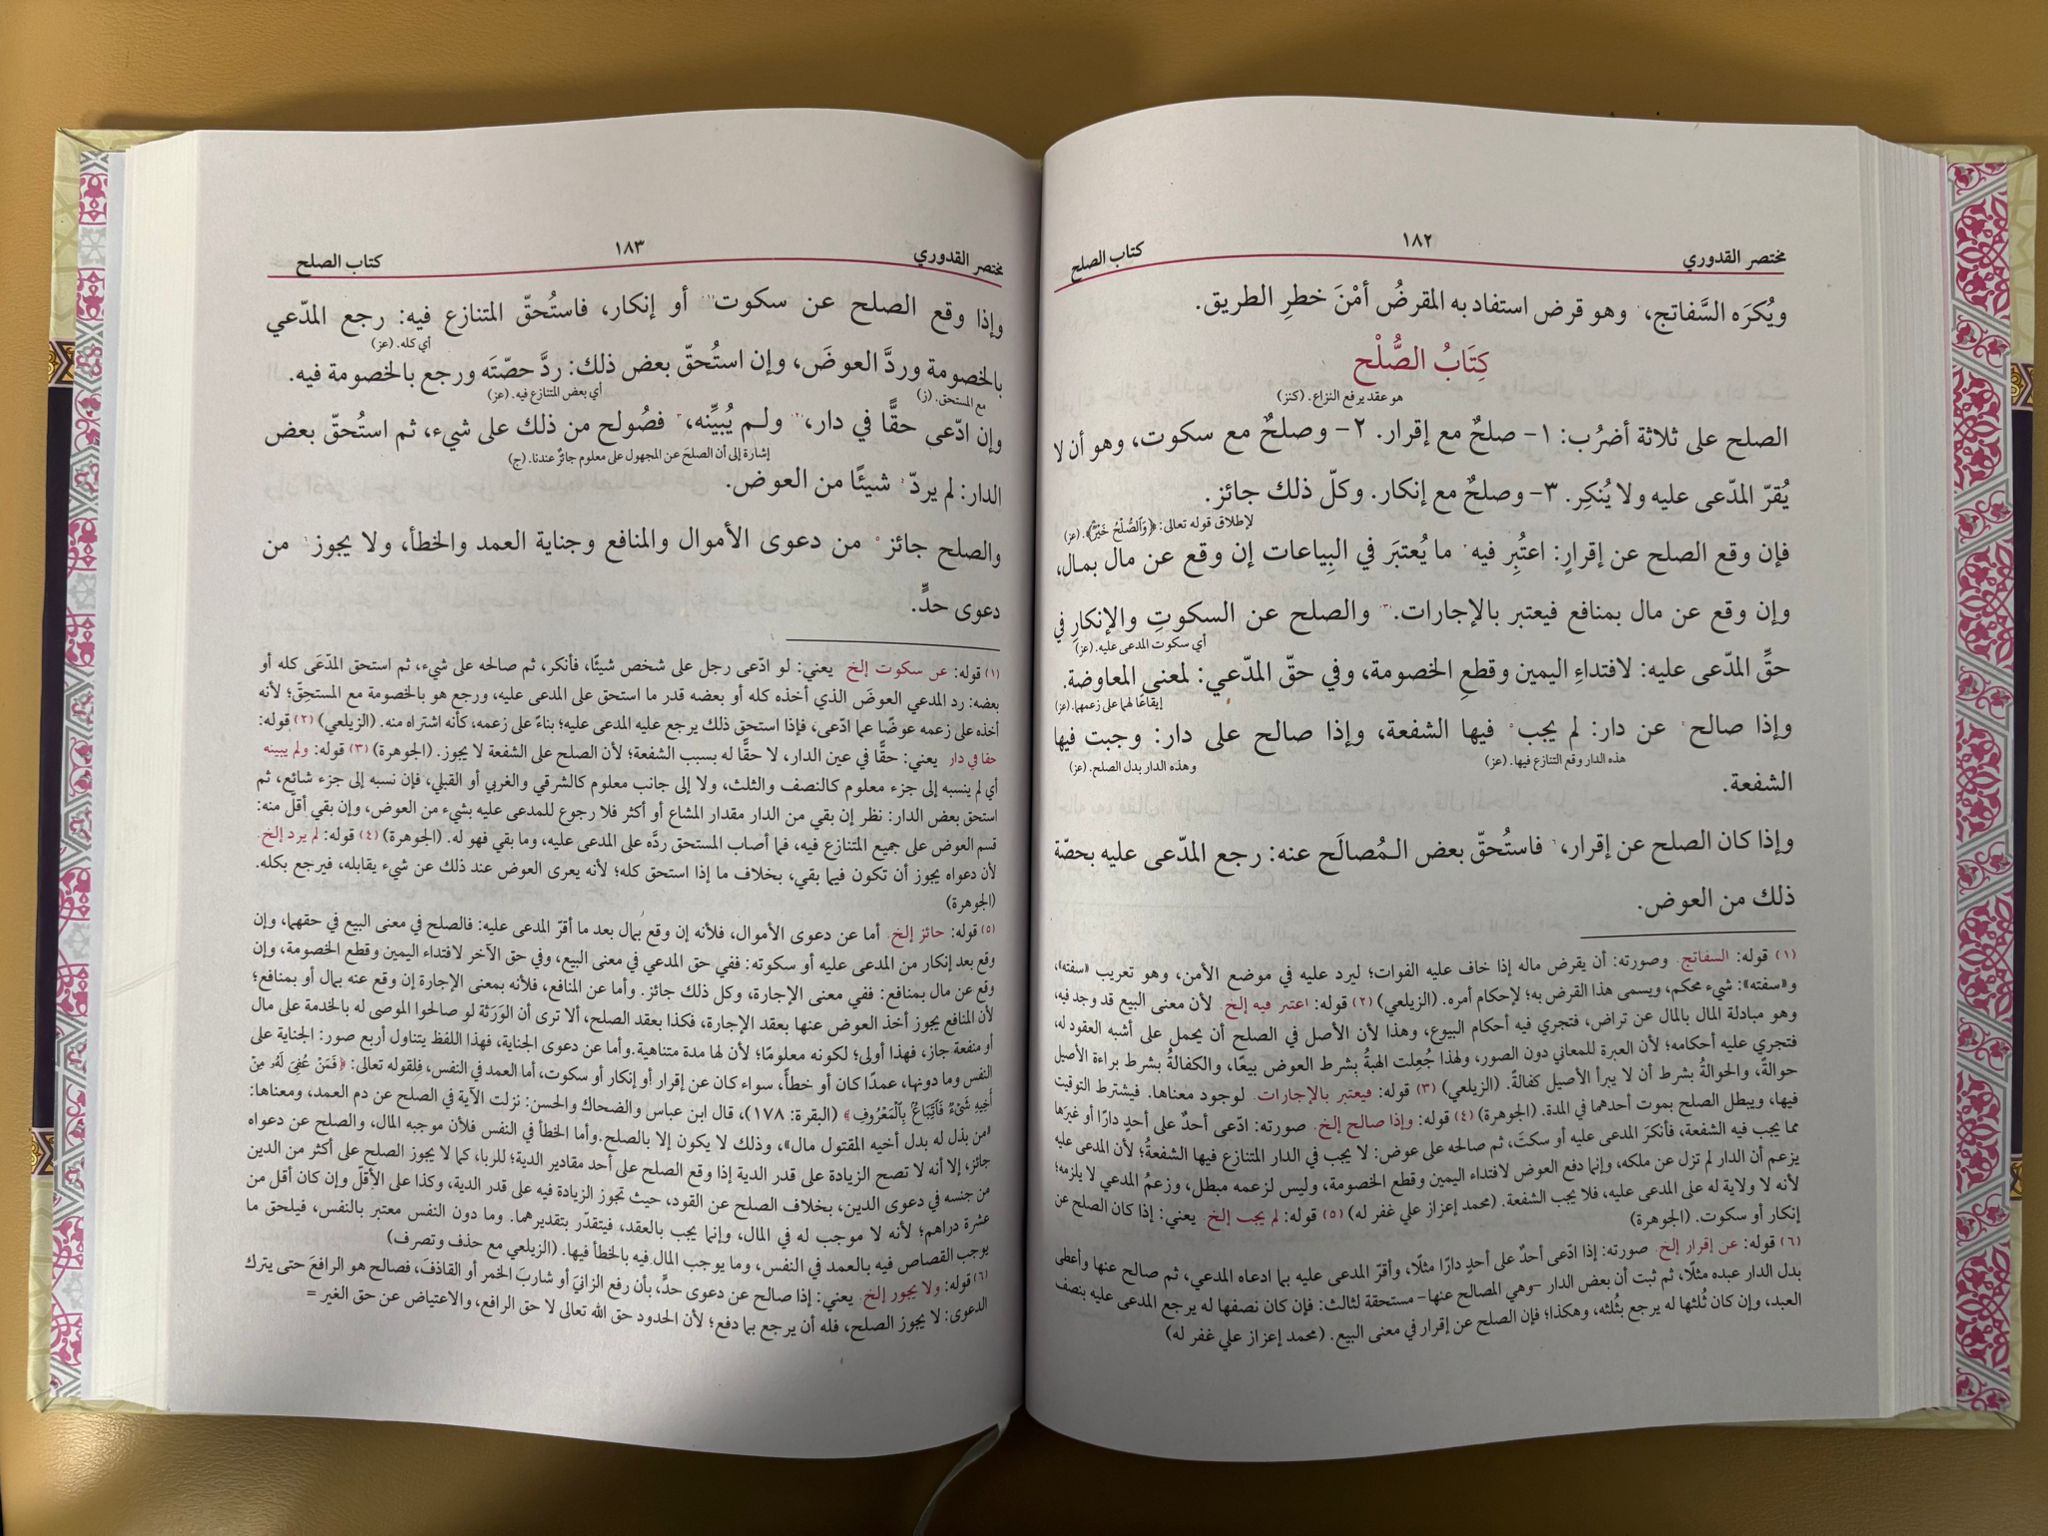 مختصر القدوري ١٨٢ كتاب الصلح
ويُكرَه السَّفاتج، وهو قرض استفاد به المقرضُ أمْنَ خطرِ الطريق.
كِتَابُ الصُّلْح
هو عقد يرفع النزاع. (كنز)
الصلح على ثلاثة أضرُب: ١- صلحٌ مع إقرار. ٢- وصلحٌ مع سكوت، وهو أن لا
يُقرّ المدّعى عليه ولا يُنكِر. ٣- وصلحٌ مع إنكار. وكلّ ذلك جائز.
لإطلاق قوله تعالى: ﴿وَٱلصُّلْحُ خَيْرٌ﴾. (عز)
فإن وقع الصلح عن إقرارٍ: اعتُبِر فيه ما يُعتبَر في البِياعات إن وقع عن مال بمال،
وإن وقع عن مال بمنافع فيعتبر بالإجارات.(٣) والصلح عن السكوتِ والإنكارِ في
أي سكوت المدعى عليه. (عز)
حقِّ المدّعى عليه: لافتداءِ اليمين وقطعِ الخصومة، وفي حقّ المدّعي: لمعنى المعاوضة.
إيقاعًا لهما على زعمهما. (عز)
وإذا صالح عن دار: لم يجب فيها الشفعة، وإذا صالح على دار: وجبت فيها
هذه الدار وقع التنازع فيها. (عز) وهذه الدار بدل الصلح. (عز)
الشفعة.
وإذا كان الصلح عن إقرار، فاستُحقّ بعض الـمُصالَح عنه: رجع المدّعى عليه بحصّة
ذلك من العوض.
(١) قوله: السفاتج. وصورته: أن يقرض ماله إذا خاف عليه الفوات؛ ليرد عليه في موضع الأمن، وهو تعريب «سفته»،
و«سفته»: شيء محكم، ويسمى هذا القرض به؛ لإحكام أمره. (الزيلعي) (٢) قوله: اعتبر فيه إلخ. لأن معنى البيع قد وجد فيه،
وهو مبادلة المال بالمال عن تراض، فتجري فيه أحكام البيوع، وهذا لأن الأصل في الصلح أن يحمل على أشبه العقود له،
فتجري عليه أحكامه؛ لأن العبرة للمعاني دون الصور، ولهذا جُعِلت الهبةُ بشرط العوض بيعًا، والكفالةُ بشرط براءة الأصيل
حوالةً، والحوالةُ بشرط أن لا يبرأ الأصيل كفالةً. (الزيلعي) (٣) قوله: فيعتبر بالإجارات. لوجود معناها. فيشترط التوقيت
فيها، ويبطل الصلح بموت أحدهما في المدة. (الجوهرة) (٤) قوله: وإذا صالح إلخ. صورته: ادّعى أحدٌ على أحدٍ دارًا أو غيرَها
مما يجب فيه الشفعة، فأنكرَ المدعى عليه أو سكتَ، ثم صالحه على عوض: لا يجب في الدار المتنازع فيها الشفعةُ؛ لأن المدعى عليه
يزعم أن الدار لم تزل عن ملكه، وإنما دفع العوض لافتداء اليمين وقطع الخصومة، وليس لزعمه مبطل، وزعمُ المدعي لا يلزمه؛
لأنه لا ولاية له على المدعى عليه، فلا يجب الشفعة. (محمد إعزاز علي غفر له) (٥) قوله: لم يجب إلخ. يعني: إذا كان الصلح عن
إنكار أو سكوت. (الجوهرة)
(٦) قوله: عن إقرار إلخ. صورته: إذا ادّعى أحدٌ على أحدٍ دارًا مثلًا، وأقرّ المدعى عليه بما ادعاه المدعي، ثم صالح عنها وأعطى
بدل الدار عبده مثلًا، ثم ثبت أن بعض الدار -وهي المصالح عنها- مستحقة لثالث: فإن كان نصفها له يرجع المدعى عليه بنصف
العبد، وإن كان ثُلثها له يرجع بثُلثه، وهكذا؛ فإن الصلح عن إقرار في معنى البيع. (محمد إعزاز علي غفر له)
مختصر القدوري ١٨٣ كتاب الصلح
وإذا وقع الصلح عن سكوت(١) أو إنكار، فاستُحقّ المتنازع فيه: رجع المدّعي
أي كله. (عز)
بالخصومة وردَّ العوضَ، وإن استُحقّ بعض ذلك: ردَّ حصّتَه ورجع بالخصومة فيه.
مع المستحق. (ز) أي بعض المتنازع فيه. (عز)
وإن ادّعى حقًّا في دار،(٢) ولـم يُبيِّنه،(٣) فصُولح من ذلك على شيء، ثم استُحقّ بعض
إشارة إلى أن الصلحَ عن المجهول على معلوم جائزٌ عندنا. (ج)
الدار: لم يردّ شيئًا من العوض.
والصلح جائز من دعوى الأموال والمنافع وجناية العمد والخطأ، ولا يجوز من
دعوى حدٍّ.
(١) قوله: عن سكوت إلخ يعني: لو ادّعى رجل على شخص شيئًا، فأنكر، ثم صالحه على شيء، ثم استحق المدّعَى كله أو
بعضه: رد المدعي العوضَ الذي أخذه كله أو بعضه قدر ما استحق على المدعى عليه، ورجع هو بالخصومة مع المستحِقّ؛ لأنه
أخذه على زعمه عوضًا عما ادّعى، فإذا استحق ذلك يرجع عليه المدعى عليه؛ بناءً على زعمه، كأنه اشتراه منه. (الزيلعي) (٢) قوله:
حقا في دار يعني: حقًّا في عين الدار، لا حقًّا له بسبب الشفعة؛ لأن الصلح على الشفعة لا يجوز. (الجوهرة) (٣) قوله: ولم يبينه
أي لم ينسبه إلى جزء معلوم كالنصف والثلث، ولا إلى جانب معلوم كالشرقي والغربي أو القبلي، فإن نسبه إلى جزء شائع، ثم
استحق بعض الدار: نظر إن بقي من الدار مقدار المشاع أو أكثر فلا رجوع للمدعى عليه بشيء من العوض، وإن بقي أقلّ منه:
قسم العوض على جميع المتنازع فيه، فما أصاب المستحق ردَّه على المدعى عليه، وما بقي فهو له. (الجوهرة) (٤) قوله: لم يرد إلخ.
لأن دعواه يجوز أن تكون فيما بقي، بخلاف ما إذا استحق كله؛ لأنه يعرى العوض عند ذلك عن شيء يقابله، فيرجع بكله.
(الجوهرة)
(٥) قوله: جائز إلخ. أما عن دعوى الأموال، فلأنه إن وقع بمال بعد ما أقرّ المدعى عليه: فالصلح في معنى البيع في حقهما، وإن
وقع بعد إنكار من المدعى عليه أو سكوته: ففي حق المدعي في معنى البيع، وفي حق الآخر لافتداء اليمين وقطع الخصومة، وإن
وقع عن مال بمنافع: ففي معنى الإجارة، وكل ذلك جائز. وأما عن المنافع، فلأنه بمعنى الإجارة إن وقع عنه بمال أو بمنافع؛
لأن المنافع يجوز أخذ العوض عنها بعقد الإجارة، فكذا بعقد الصلح، ألا ترى أن الوَرَثة لو صالحوا الموصى له بالخدمة على مال
أو منفعة جاز، فهذا أولى؛ لكونه معلومًا؛ لأن لها مدة متناهية. وأما عن دعوى الجناية، فهذا اللفظ يتناول أربع صور: الجناية على
النفس وما دونها، عمدًا كان أو خطأً، سواء كان عن إقرار أو إنكار أو سكوت، أما العمد في النفس، فلقوله تعالى: ﴿فَمَنْ عُفِىَ لَهُۥ مِنْ
أَخِيهِ شَىْءٌ فَٱتِّبَاعٌۢ بِٱلْمَعْرُوفِ﴾ (البقرة: ١٧٨)، قال ابن عباس والضحاك والحسن: نزلت الآية في الصلح عن دم العمد، ومعناها:
«من بذل له بدل أخيه المقتول مال»، وذلك لا يكون إلا بالصلح. وأما الخطأ في النفس فلأن موجبه المال، والصلح عن دعواه
جائز، إلا أنه لا تصح الزيادة على قدر الدية إذا وقع الصلح على أحد مقادير الدية؛ للربا، كما لا يجوز الصلح على أكثر من الدين
من جنسه في دعوى الدين، بخلاف الصلح عن القود، حيث تجوز الزيادة فيه على قدر الدية، وكذا على الأقلّ وإن كان أقل من
عشرة دراهم؛ لأنه لا موجب له في المال، وإنما يجب بالعقد، فيتقدّر بتقديرهما. وما دون النفس معتبر بالنفس، فيلحق ما
يوجب القصاص فيه بالعمد في النفس، وما يوجب المال فيه بالخطأ فيها. (الزيلعي مع حذف وتصرف)
(٦) قوله: ولا يجوز إلخ. يعني: إذا صالح عن دعوى حدٍّ، بأن رفع الزانيَ أو شاربَ الخمر أو القاذفَ، فصالح هو الرافعَ حتى يترك
الدعوى: لا يجوز الصلح، فله أن يرجع بما دفع؛ لأن الحدود حق الله تعالى لا حق الرافع، والاعتياض عن حق الغير =